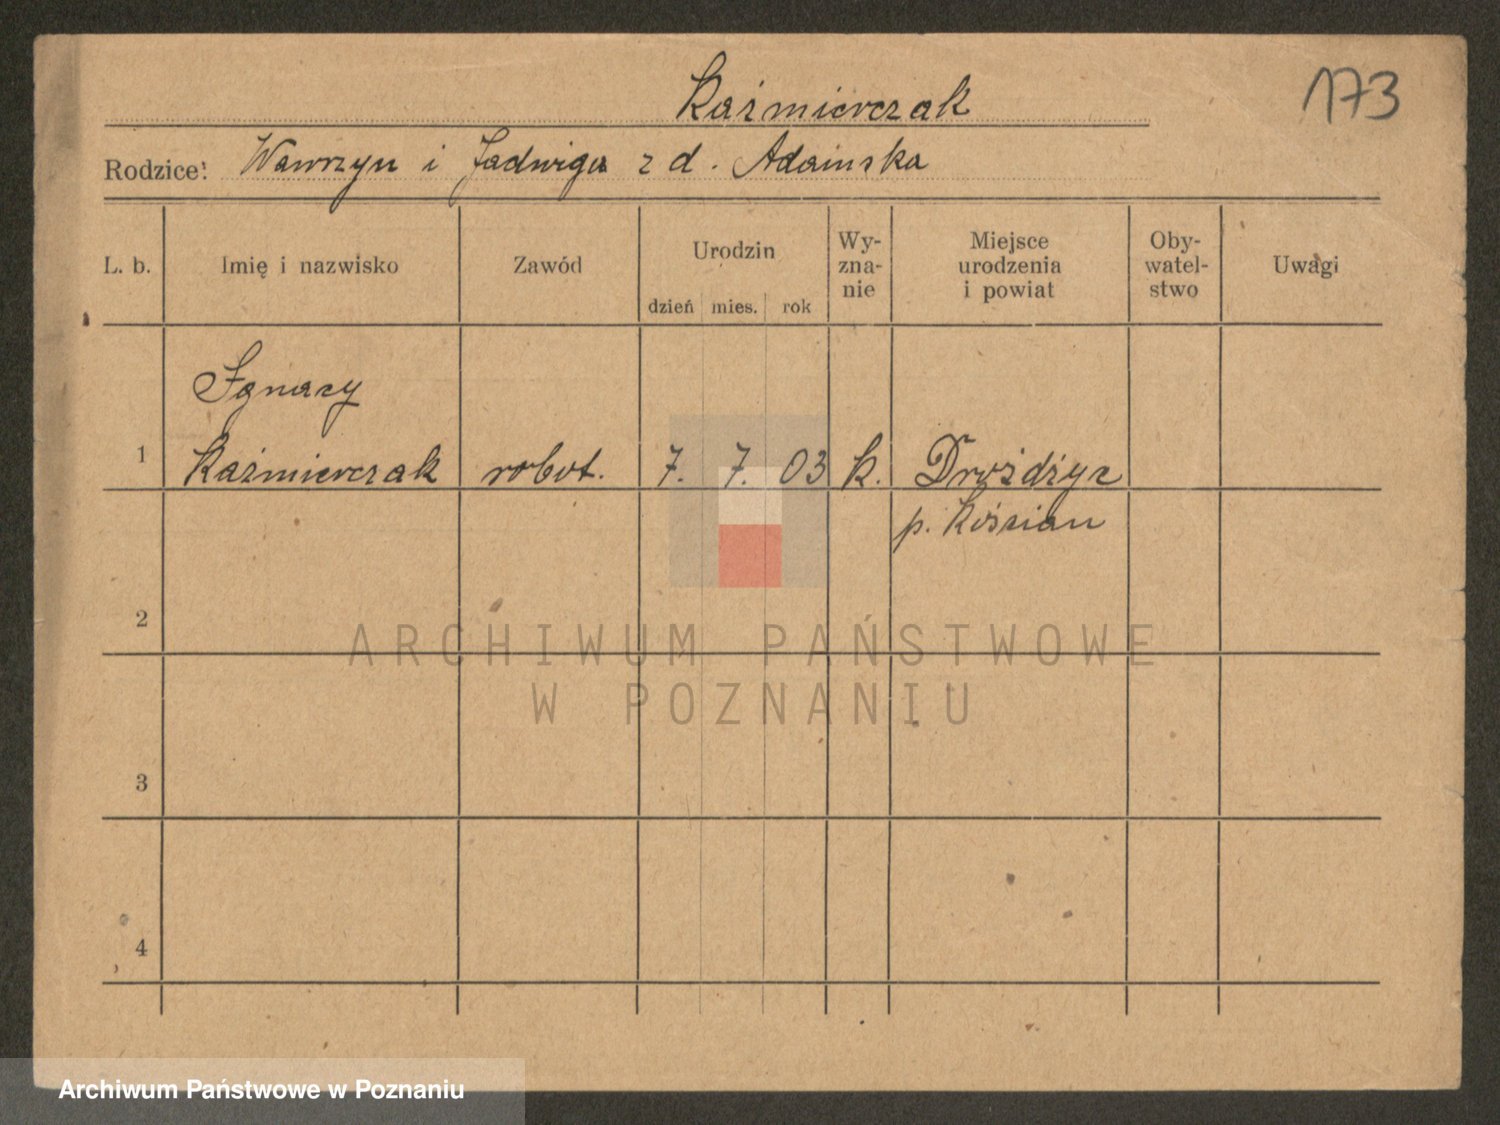 Kaźmierczak
173
Rodzice: Wawrzyn i Jadwiga z d. Adamska
L. b.
Imię i nazwisko
Zawód
Urodzin
dzień mies. rok
Wy-
zna-
nie
Miejsce
urodzenia
i powiat
Oby-
watel-
stwo
Uwagi
Ignacy
1 Kaźmierczak robot. 7. 7. 03 k. Drożdżyc
p. Kościan
2
ARCHIWUM PAŃSTWOWE
W POZNANIU
3
4
Archiwum Państwowe w Poznaniu